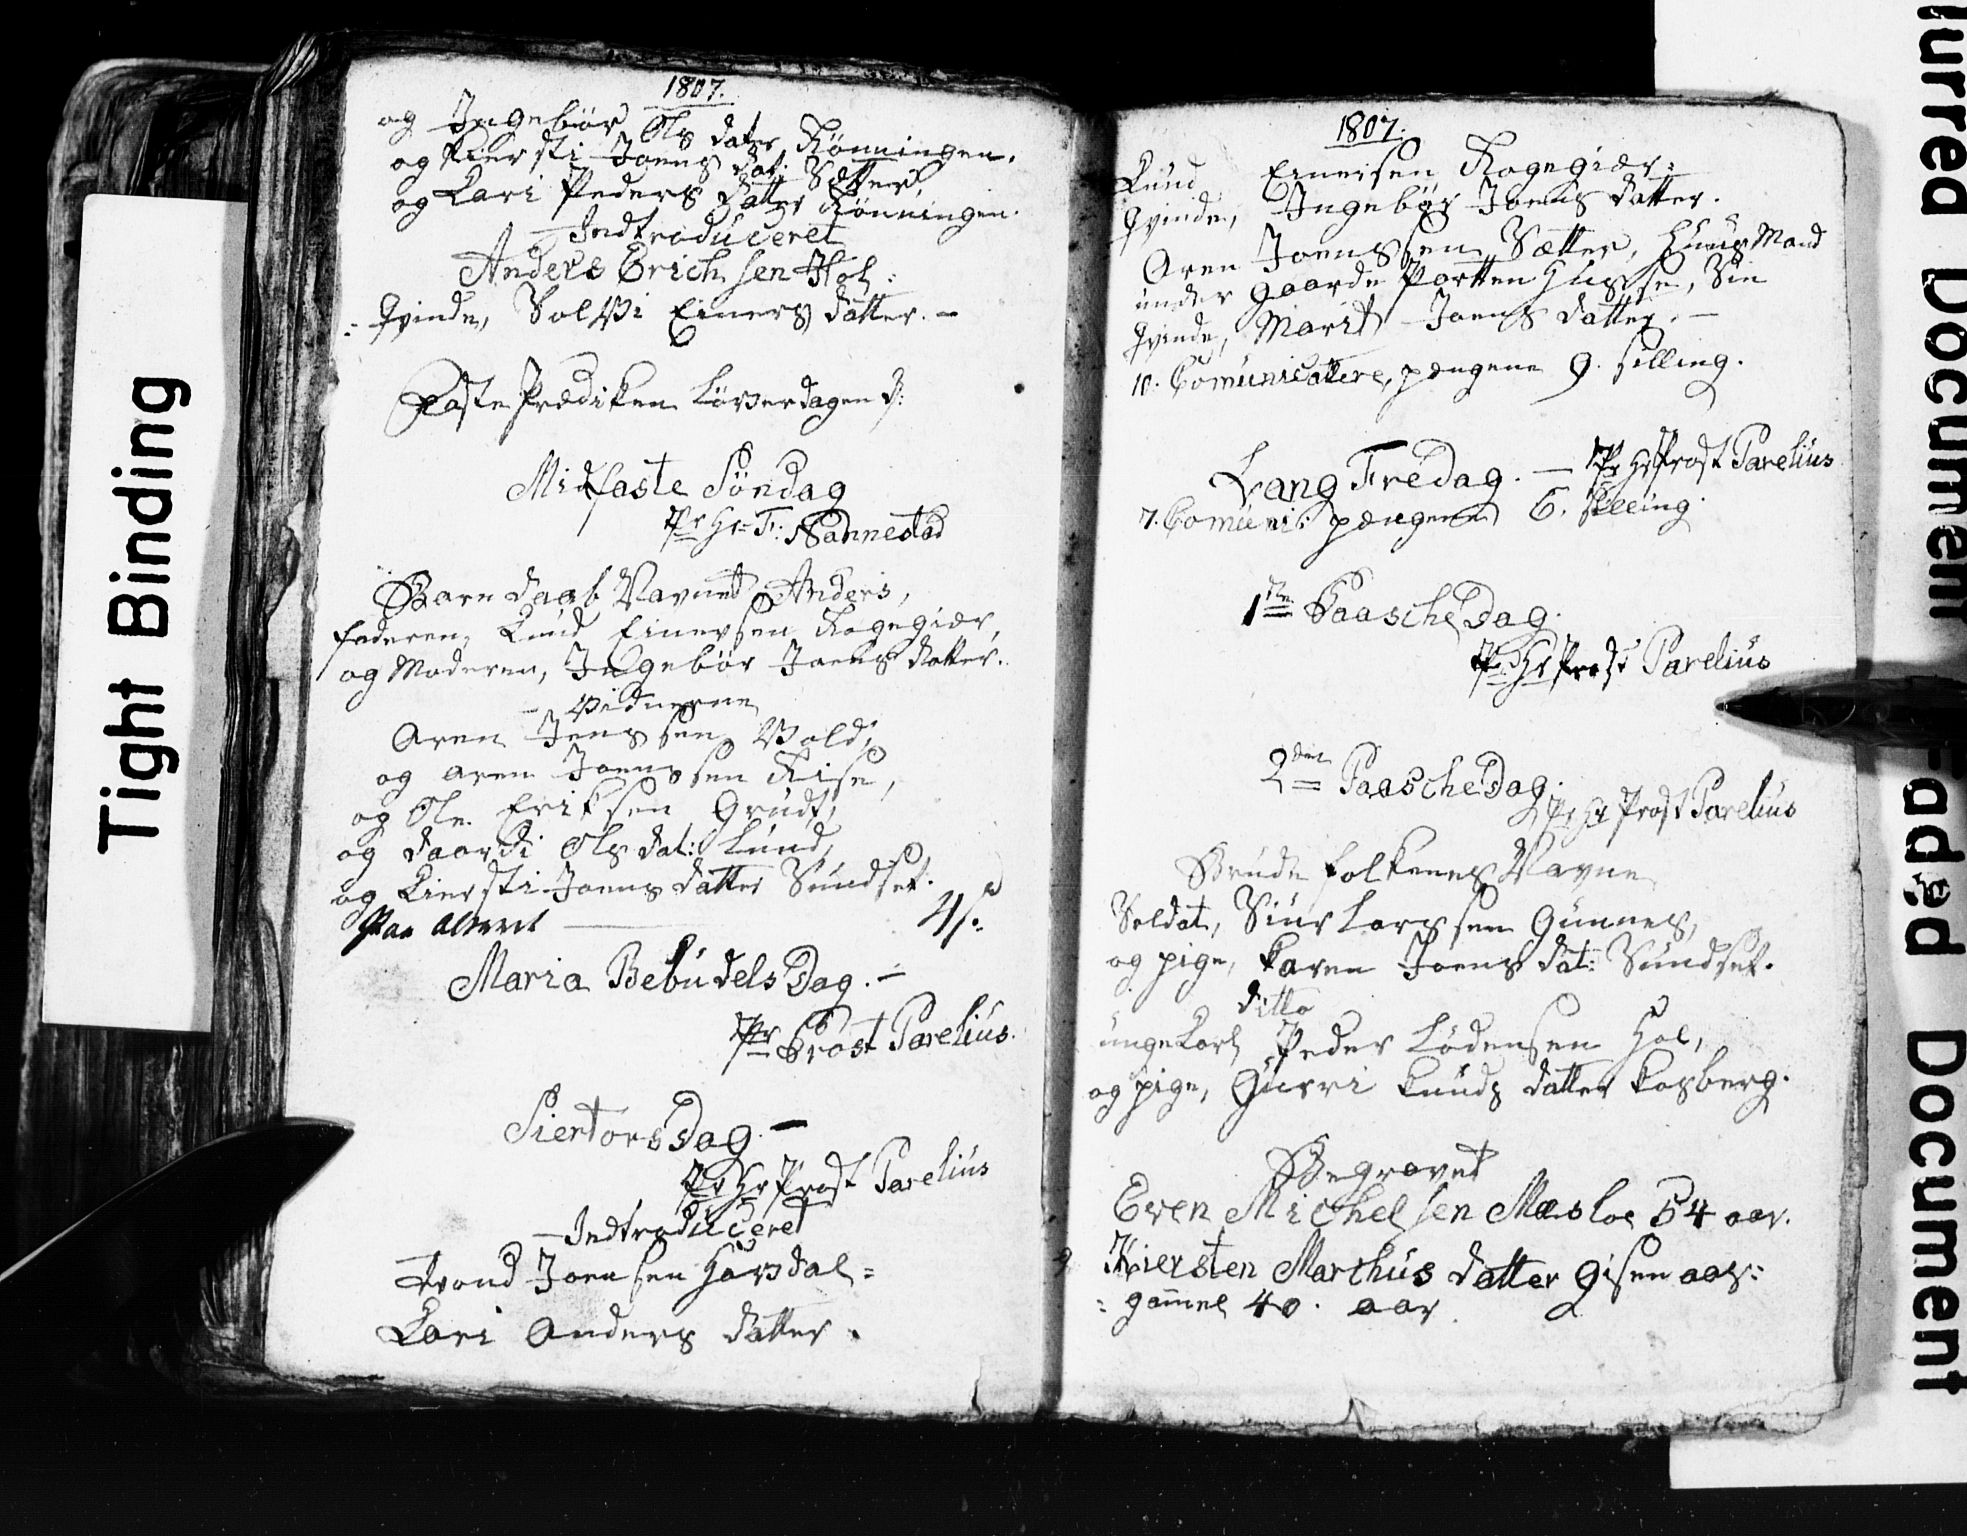 1807.
og Ingebør Ols dater Rønningen.
og Kiersti Joens Dat: Sætter,
og Kari Peders Datter Rønningen.
Indtroduceret
Anders Erichsen Hol:
Qvinde, Solvi Einers datter. —
Faste Prædiken Løverdagen
Midfaste Søndag
Pr Hr T: Nannestad
Barn daab Navnet Anders,
faderen, Knud Einersen Rogegiær,
og Moderen, Ingebør Joens datter.
vidnerne
Aren Jenssen Vold,
og Aren Joenssen Riise,
og Ole Eriksen Grudt,
og Daardi Ols dat: Lund,
og Kiersti Joens datter Sundset.
Paa Alteret — 4 s.
Maria Bebudels Dag. —
Pr Prost Parelius.
Siertors Dag. —
Pr Hr Prost Parelius
— Indtroduceret
Trond Joensen Harsdal =
Kari Anders datter.
1807.
Knud Einersen Rogegiær:
Qvinde, Ingebør Joens datter.
Aren Joenssen Sætter, Huus Mand
under gaarde Portten Husse, Sin
Qvinde, Marit Joens datter. —
10. Comunicattere, pengene 9. silling.
Lang Fredag. — Pr Hr Prost Parelius
7. Comuni: pengene 6. silling.
1ste Paasche Dag.
Pr. Hr Prost Parelius
2den Paasche Dag.
Pr Hr Prost Parelius
Brude folkenes Navne
Soldat, Siur Larssen Gunnes,
og pige, Karen Joens dat: Sundset.
ditto
unge Karl Peder Lødensen Hol,
og pige, Gurri Knuds datter Kosberg.
Begravet
Even Michelsen Mæsloe 54 aar.
Kiersten Marthus datter Gisenaas:
= gamel 40. aar.
Tight Binding
Document
Faded Document